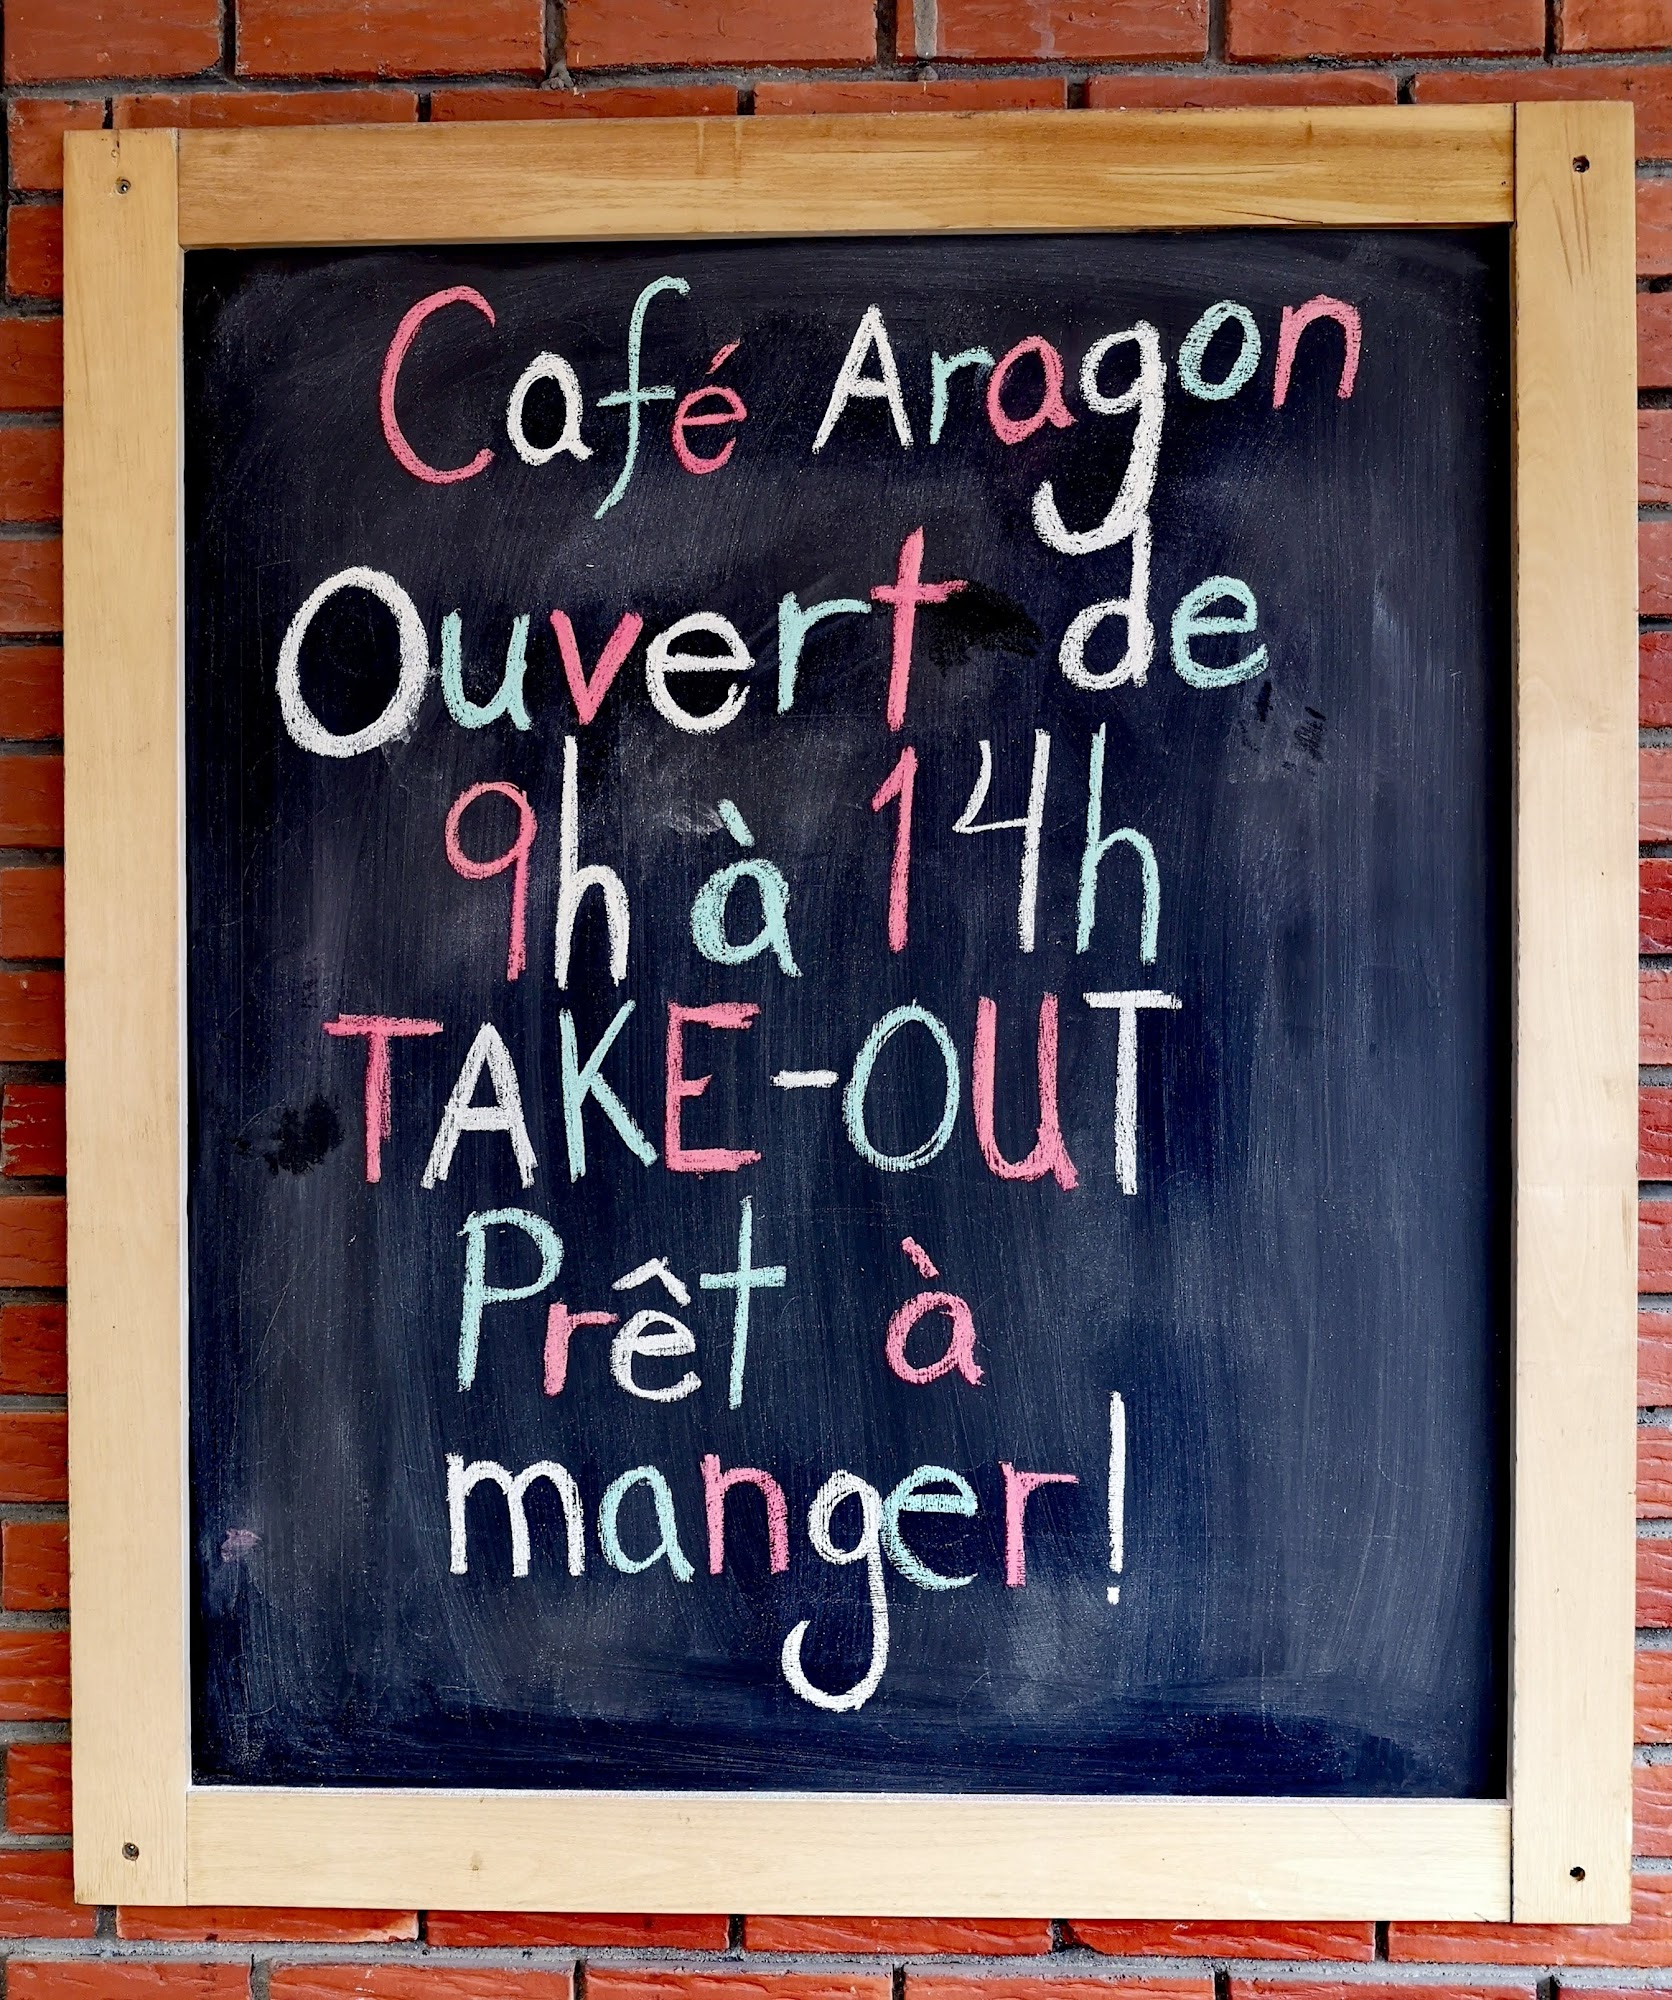 Café Aragon
Ouvert de
9h à 14h
TAKE-OUT
Prêt à
manger!